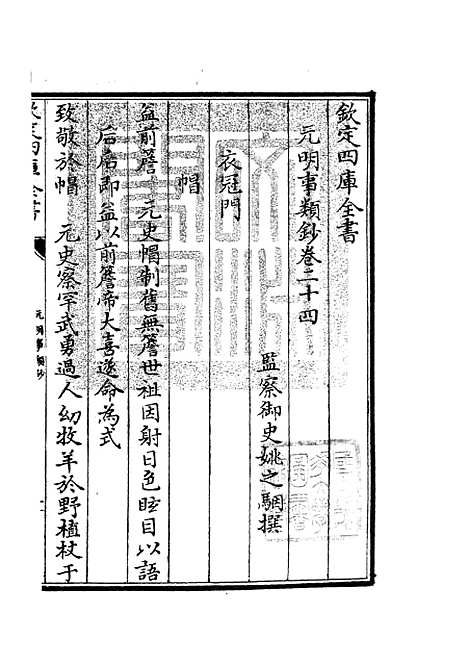 欽定四庫全書
元明事類鈔卷二十四
監察御史姚之駰撰
衣冠門
帽
益前簷　元史帽制舊無簷世祖因射日色眩目以語
后后即益以前簷帝大喜遂命為式
致敬於帽　元史察罕武勇過人幼牧羊於野植杖于
欽定四庫全書
元明事類鈔